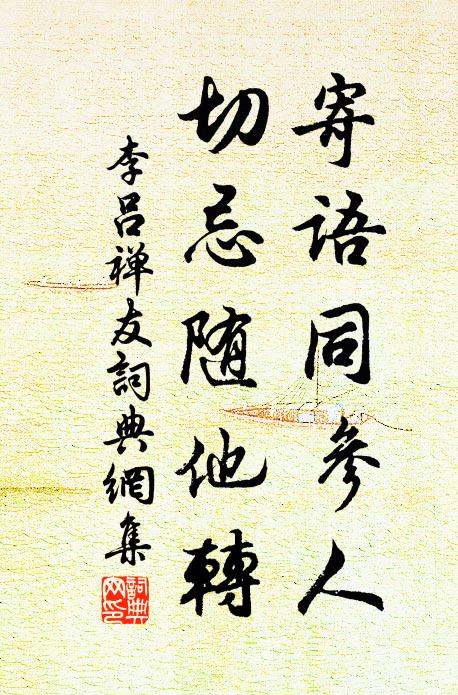 寄语同參人
切忌随他轉
李吕禅友詞典網集
詞典网印